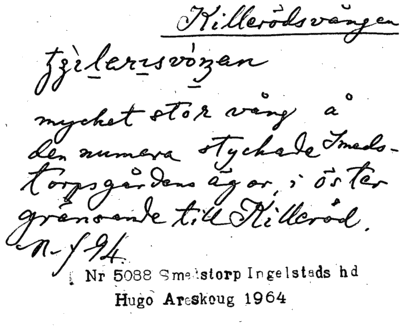 Killerödsvången
mycket stor vång å
den numera styckade Smeds-
torpsgårdens ägor, i öster
gränsande till Killeröd.
Nr 5088 Smedstorp Ingelstads hd
Hugo Areskoug 1964